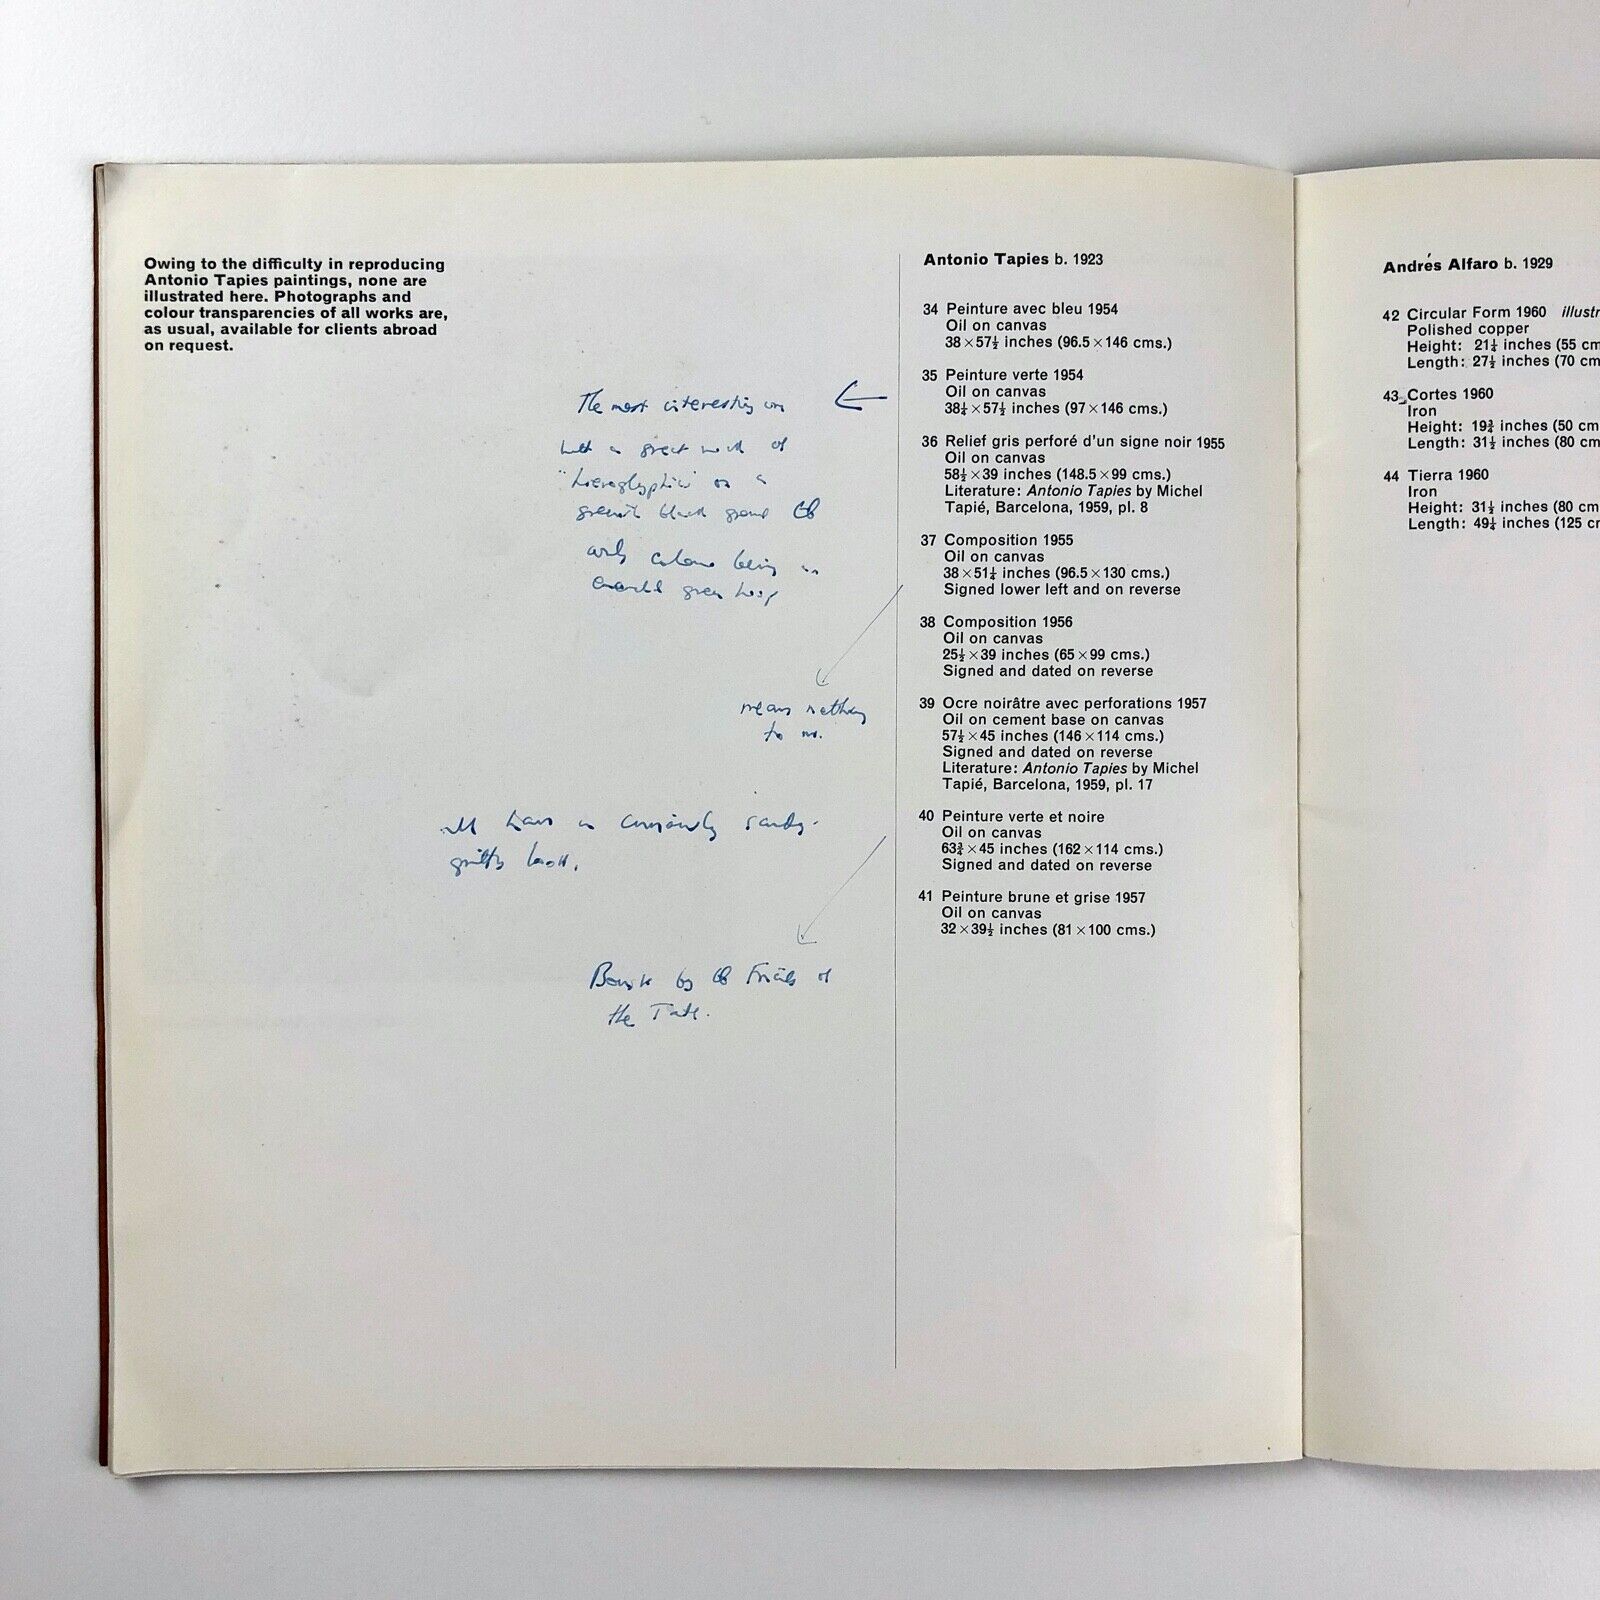 Owing to the difficulty in reproducing
Antonio Tapies paintings, none are
illustrated here. Photographs and
colour transparencies of all works are,
as usual, available for clients abroad
on request.
The most interesting
a great of
"hieroglyphics" on a
black
only colour being
green
means nothing
to me.
All have a curiously sandy-
gritty look.
Bought by Friends of
the Tate.
Antonio Tapies b. 1923
34 Peinture avec bleu 1954
Oil on canvas
38×57½ inches (96.5×146 cms.)
35 Peinture verte 1954
Oil on canvas
38¼×57½ inches (97×146 cms.)
36 Relief gris perforé d'un signe noir 1955
Oil on canvas
58½×39 inches (148.5×99 cms.)
Literature: Antonio Tapies by Michel
Tapié, Barcelona, 1959, pl. 8
37 Composition 1955
Oil on canvas
38×51¼ inches (96.5×130 cms.)
Signed lower left and on reverse
38 Composition 1956
Oil on canvas
25½×39 inches (65×99 cms.)
Signed and dated on reverse
39 Ocre noirâtre avec perforations 1957
Oil on cement base on canvas
57½×45 inches (146×114 cms.)
Signed and dated on reverse
Literature: Antonio Tapies by Michel
Tapié, Barcelona, 1959, pl. 17
40 Peinture verte et noire
Oil on canvas
63¾×45 inches (162×114 cms.)
Signed and dated on reverse
41 Peinture brune et grise 1957
Oil on canvas
32×39½ inches (81×100 cms.)
Andrés Alfaro b. 1929
42 Circular Form 1960 illustr
Polished copper
Height: 21¼ inches (55 cm
Length: 27½ inches (70 cm
43 Cortes 1960
Iron
Height: 19¾ inches (50 cm
Length: 31½ inches (80 cm
44 Tierra 1960
Iron
Height: 31½ inches (80 cm
Length: 49¼ inches (125 cm